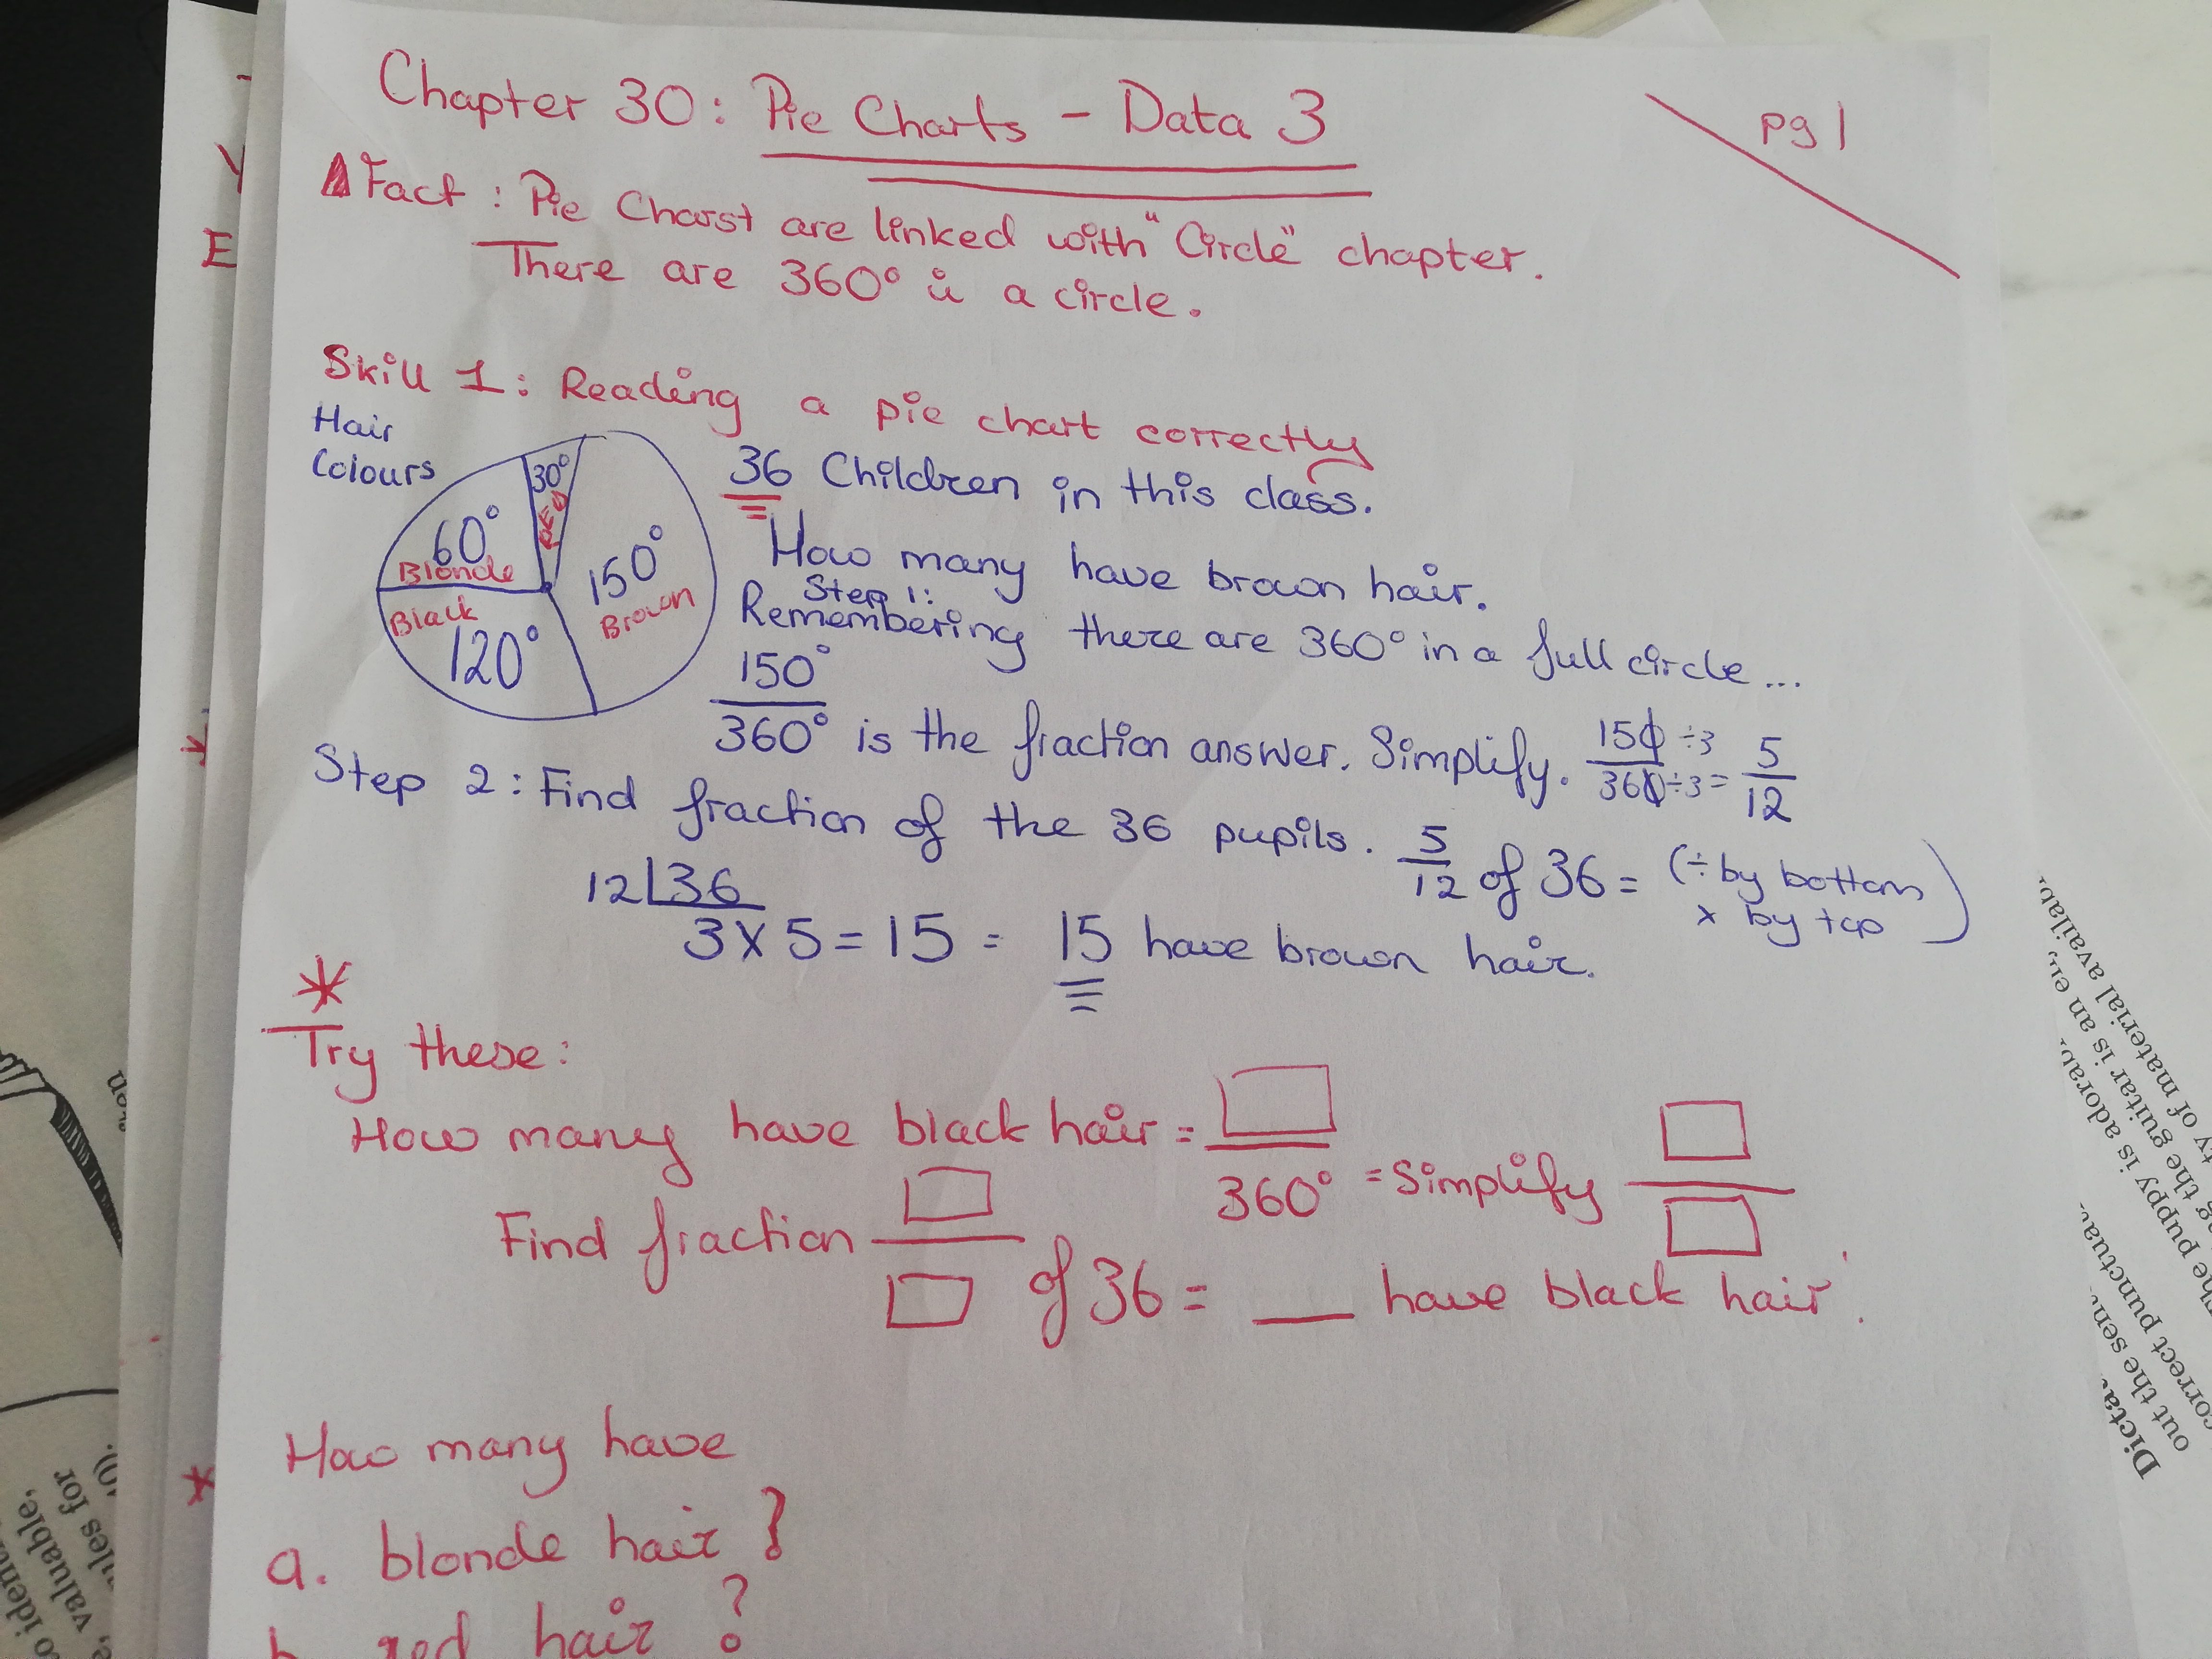 Chapter 30: Pie Charts - Data 3
pg 1
Fact: Pie Charst are linked with "Circle" chapter.
There are 360° in a circle.
Skill 1: Reading a pie chart correctly
Hair
Colours
30°
RED
60°
Blonde
150°
Brown
Black
120°
36 Children in this class.
How many have brown hair.
Step 1:
Remembering there are 360° in a full circle...
150°
360° is the fraction answer. Simplify. 150 ÷3 / 360 ÷3 = 5/12
Step 2: Find fraction of the 36 pupils. 5/12 of 36 = (÷ by bottom
x by top)
12 36
3 x 5 = 15 = 15 have brown hair.
*
Try these:
How many have black hair = 
360° = Simplify
Find fraction
of 36 = __ have black hair.
How many have
a. blonde hair?
b. red hair?
E
Dicta
out the sen
correct punctua
the puppy is adorab
g the guitar is an e
ty of material availab
valuable,